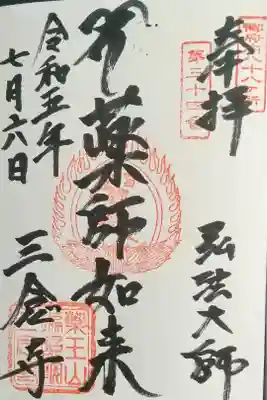 奉拝
第三十四番
弘法大師
藥師如来
令和五年
七月六日
三念寺
薬王山